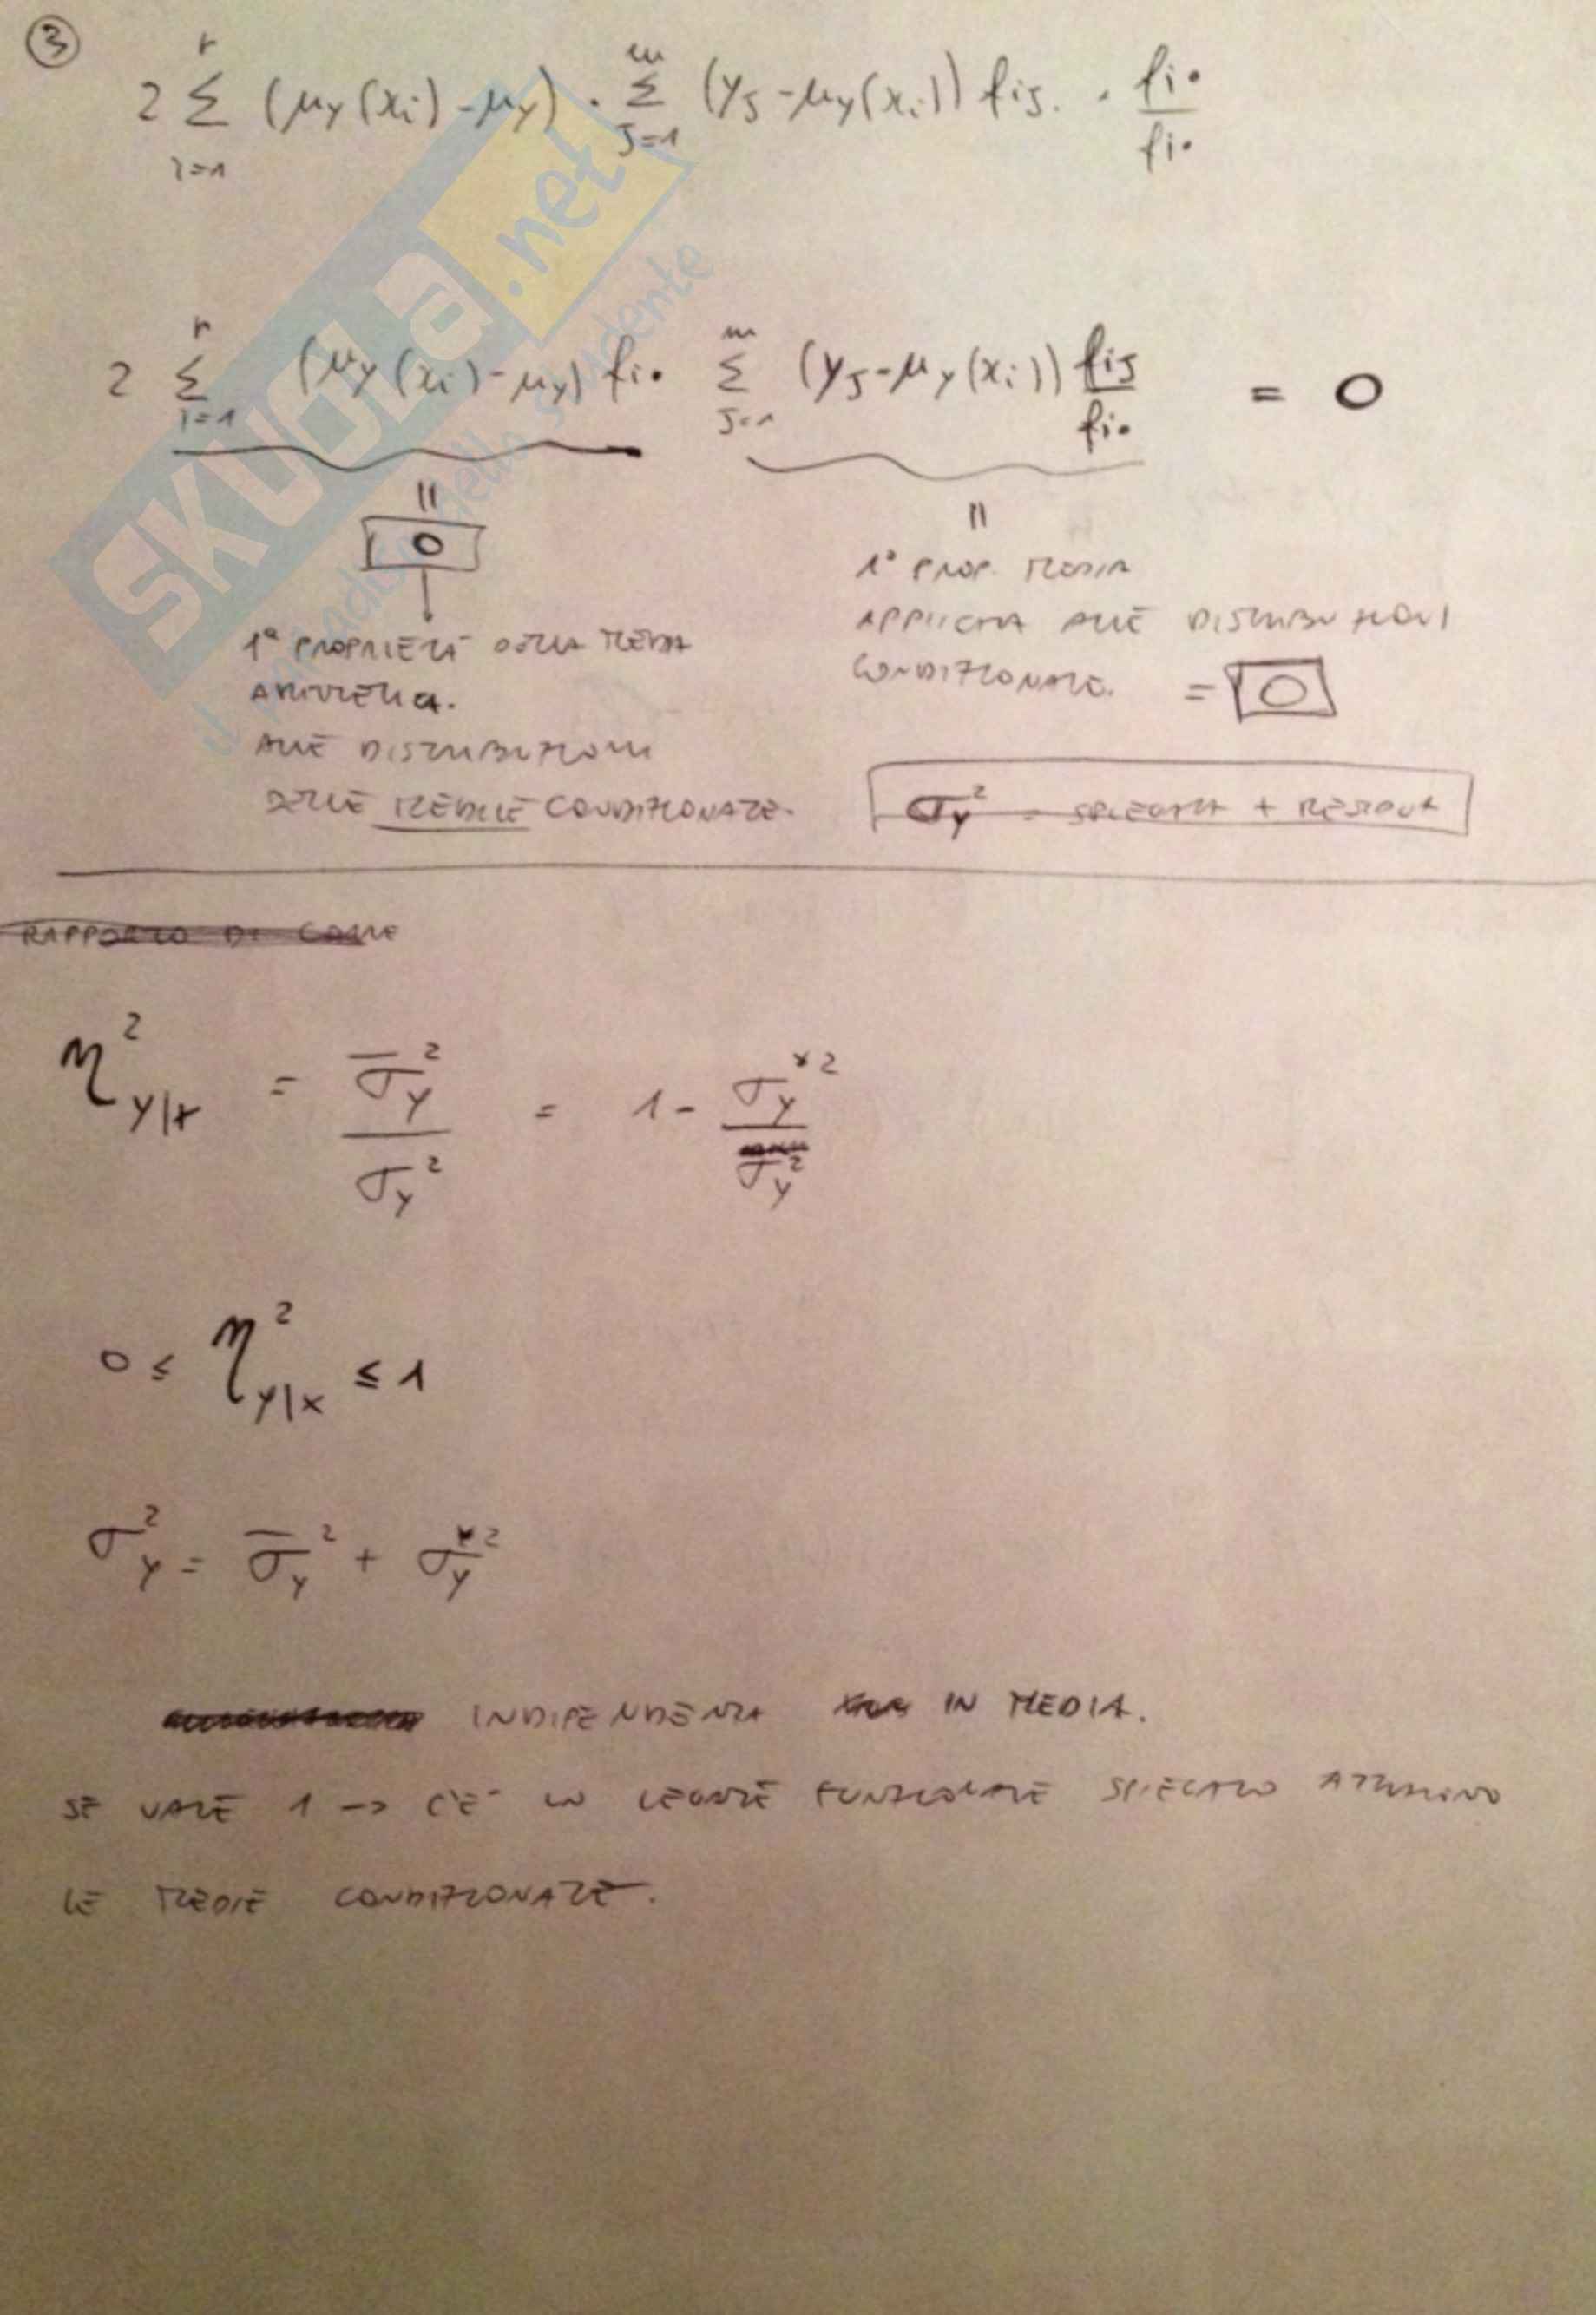 ③
2 Σ_{i=1}^{r} (μy(xi) - μy) · Σ_{J=1}^{m} (yJ - μy(xi)) fiJ. · fi•/fi•
SKUOLa.net
2 Σ_{i=1}^{r} (μy(xi) - μy) fi• Σ_{J=1}^{m} (yJ - μy(xi)) fiJ/fi• = 0
= 0
1ª PROPRIETÀ DELLA MEDIA
ARITMETICA.
ALLE DISTRIBUZIONI
DELLE MEDIE CONDIZIONATE.
=
1ª PROP. MEDIA
APPLICATA ALLE DISTRIBUZIONI
CONDIZIONATE. = 0
σy² = SPIEGATA + RESIDUA
RAPPORTO DI
η²y|x = σ̄y²/σy² = 1 - σy*²/σy²
0 ≤ η²y|x ≤ 1
σ²y = σ̄y² + σy*²
INDIPENDENZA IN MEDIA.
SE VALE 1 -> C'È UN LEGAME FUNZIONALE SPIEGATO ATTRAVERSO
LE MEDIE CONDIZIONATE.